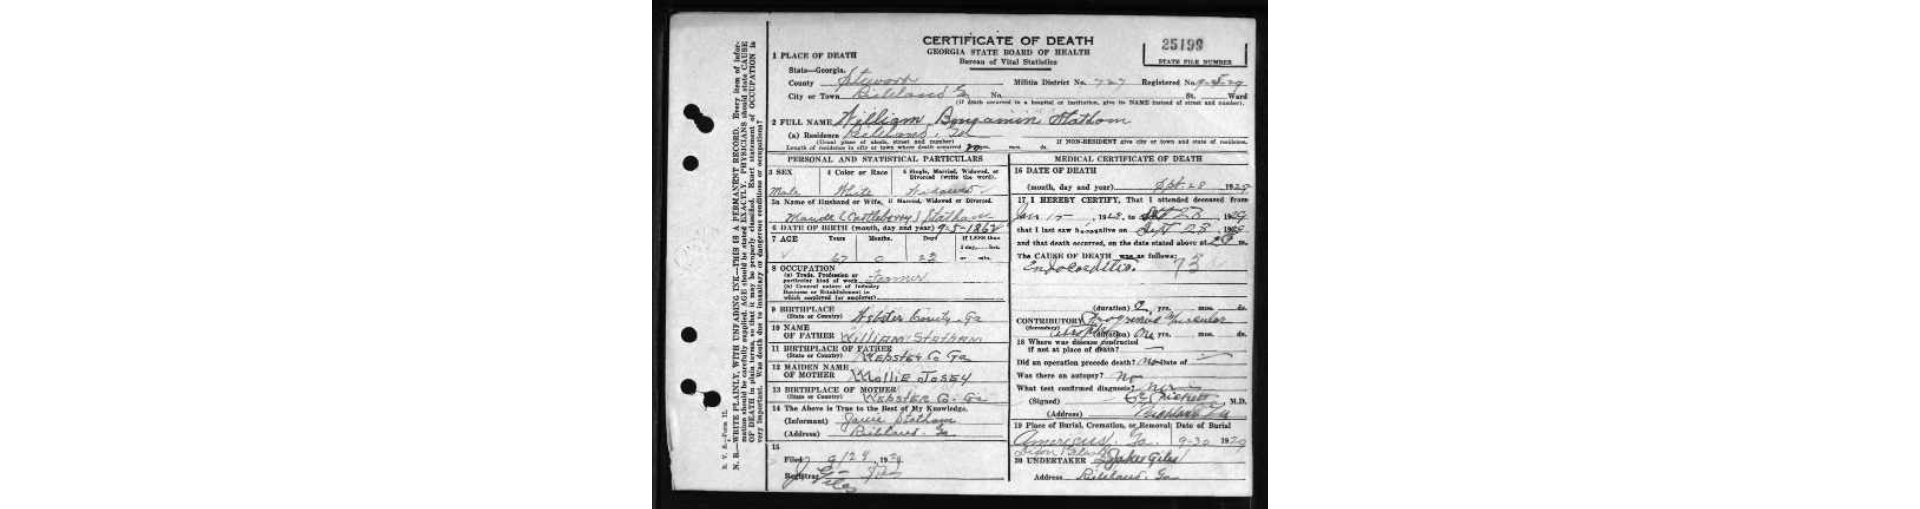 CERTIFICATE OF DEATH
GEORGIA STATE BOARD OF HEALTH
Bureau of Vital Statistics
25199
STATE FILE NUMBER
1 PLACE OF DEATH
State—Georgia.
County Stewart Militia District No. 727 Registered No.
City or Town Richland Ga No. St. Ward
(If death occurred in a hospital or institution, give its NAME instead of street and number).
2 FULL NAME William Benjamin Statham
(a) Residence Richland, Ga
(Usual place of abode, street and number) If NON-RESIDENT give city or town and state of residence.
Length of residence in city or town where death occurred 20 yrs. mos. ds.
PERSONAL AND STATISTICAL PARTICULARS
3 SEX 4 Color or Race 5 Single, Married, Widowed, or Divorced (write the word).
Male White Widower
5a Name of Husband or Wife, if Married, Widowed or Divorced.
Maude (Castleberry) Statham
6 DATE OF BIRTH (month, day and year) 9-5-1862
7 AGE Years Months Days If LESS than 1 day, hrs. or min.
67 0 23
8 OCCUPATION
(a) Trade, Profession or particular kind of work Farmer
(b) General nature of Industry Business or Establishment in which employed (or employer)
9 BIRTHPLACE
(State or Country) Webster County, Ga
10 NAME OF FATHER William Statham
11 BIRTHPLACE OF FATHER
(State or Country) Webster Co Ga
12 MAIDEN NAME OF MOTHER Mollie Josey
13 BIRTHPLACE OF MOTHER
(State or Country) Webster Co. Ga
14 The Above is True to the Best of My Knowledge.
(Informant) Statham
(Address) Richland, Ga
15
Filed 9/28, 1929
Registrar
MEDICAL CERTIFICATE OF DEATH
16 DATE OF DEATH
(month, day and year) Sept. 28 192
17 I HEREBY CERTIFY, That I attended deceased from
Jan 15, 192 , to 28 1929
that I last saw h alive on Sept 28 192
and that death occurred, on the date stated above at m.
The CAUSE OF DEATH was as follows:
Endocarditis.
(duration) yrs. mos. ds.
CONTRIBUTORY Progressive Muscular
(Secondary) (duration) One yrs. mos. ds.
18 Where was disease contracted
if not at place of death?
Did an operation precede death? No Date of
Was there an autopsy? No
What test confirmed diagnosis?
(Signed) M.D.
(Address) Richland Ga
19 Place of Burial, Cremation, or Removal Date of Burial
Americus, Ga. 9-30 1929
20 UNDERTAKER Giles
Address Richland, Ga
B. V. S.—Form 11.
N. B.—WRITE PLAINLY, WITH UNFADING INK—THIS IS A PERMANENT RECORD. Every item of information should be carefully supplied. AGE should be stated EXACTLY. PHYSICIANS should state CAUSE
OF DEATH in plain terms, so that it may be properly classified. Exact statement of OCCUPATION is
very important. Was death due to insanitary or dangerous conditions or occupations?